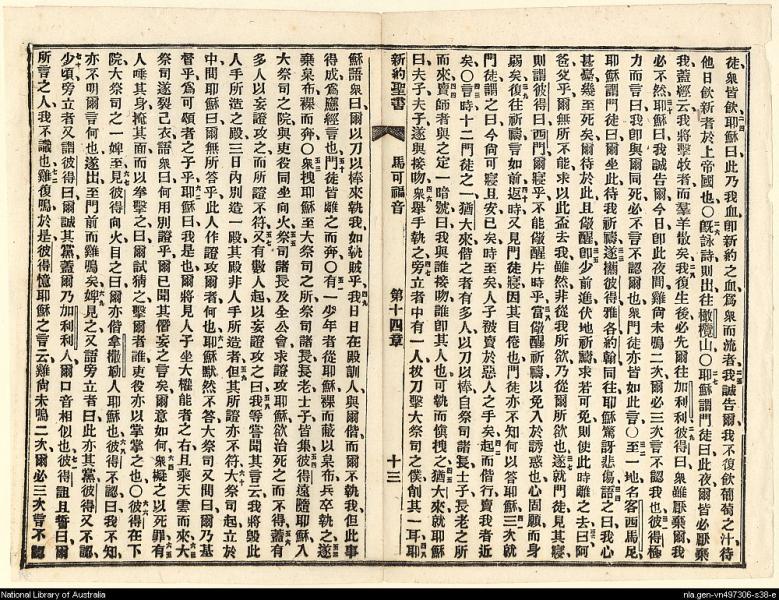 徒衆皆飲耶穌曰此乃我血卽新約之血爲衆而流者我誠告爾我不復飲葡萄之汁待
他日飲新者於上帝國也○旣詠詩則出往橄欖山○耶穌謂門徒曰此夜爾皆必厭棄
我蓋經云我將擊牧者而羣羊散矣我復生後必先爾往加利利彼得曰衆雖厭棄爾我
必不然耶穌曰我誠告爾今日卽此夜間雞尙未鳴二次爾必三次言不認我也彼得極
力而言曰我卽與爾同死必不言不認爾也衆門徒亦皆如此言○至一地名客西馬尼
耶穌謂門徒曰爾坐此待我祈禱遂攜彼得雅各約翰同往耶穌驚訝悲傷語之曰我心
甚憂幾至死矣爾待於此且儆醒卽少前進伏地祈禱求若可免則使此時離之去曰阿
爸父乎爾無所不能求以此盃去我雖然非從我所欲乃從爾所欲也遂就門徒見其寢
則謂彼得曰西門爾寢乎不能儆醒片時乎當儆醒祈禱以免入於誘惑也心固願而身
弱矣復往祈禱言如前返時又見門徒寢因其目倦也門徒亦不知何以答耶穌三次就
門徒謂之曰今尙可寢且安已矣時至矣人子被賣於惡人之手矣起而偕行賣我者近
矣○言時十二門徒之一猶大來偕之者有多人以刀以棒自祭司諸長士子長老之所
而來賣師者與之定一暗號曰我與誰接吻誰卽其人也可執而愼拽之猶大來就耶穌
曰夫子夫子遂與接吻衆舉手執之旁立者中有一人拔刀擊大祭司之僕削其一耳耶
新約聖書 馬可福音 第十四章 十三
穌語衆曰爾以刀以棒來執我如執賊乎我日日在殿訓人與爾偕而爾不執我但此事
得成爲應經言也門徒皆離之而奔○有一少年者從耶穌裸而蔽以枲布兵卒執之遂
棄枲布裸而奔○衆拽耶穌至大祭司之所祭司諸長長老士子皆集彼得遠隨耶穌入
大祭司之院與吏役同坐向火祭司諸長及全公會求證攻耶穌欲治死之而不得蓋有
多人以妄證攻之而所證不符又有數人起以妄證攻之曰我等嘗聞其言云我將毀此
人手所造之殿三日內別造一殿其殿非人手所造者但其所證亦不符大祭司起立於
中間耶穌曰爾無所答乎此人作證攻爾者何也耶穌默然不答大祭司又問曰爾乃基
督乎爲可頌者之子乎耶穌曰我是也爾將見人子坐大權能者之右且乘天雲而來大
祭司遂裂己衣語衆曰何用別證乎爾已聞其僭妄之言矣爾意如何衆擬之以死罪有
人唾其身掩其面而以拳擊之曰爾試猜之擊爾者誰吏役亦以掌擊之也○彼得在下
院大祭司之一婢至見彼得向火目之曰爾亦偕拿撒勒人耶穌也彼得不認曰我不知
亦不明爾言何也遂出至門前而雞鳴矣婢見之又語旁立者曰此亦其黨彼得又不認
少頃旁立者又謂彼得曰爾誠其黨蓋爾乃加利利人爾口音相似也彼得詛且誓曰爾
所言之人我不識也雞復鳴於是彼得憶耶穌之言云雞尙未鳴二次爾必三次言不認
National Library of Australia
nla.gen-vn497306-s38-e